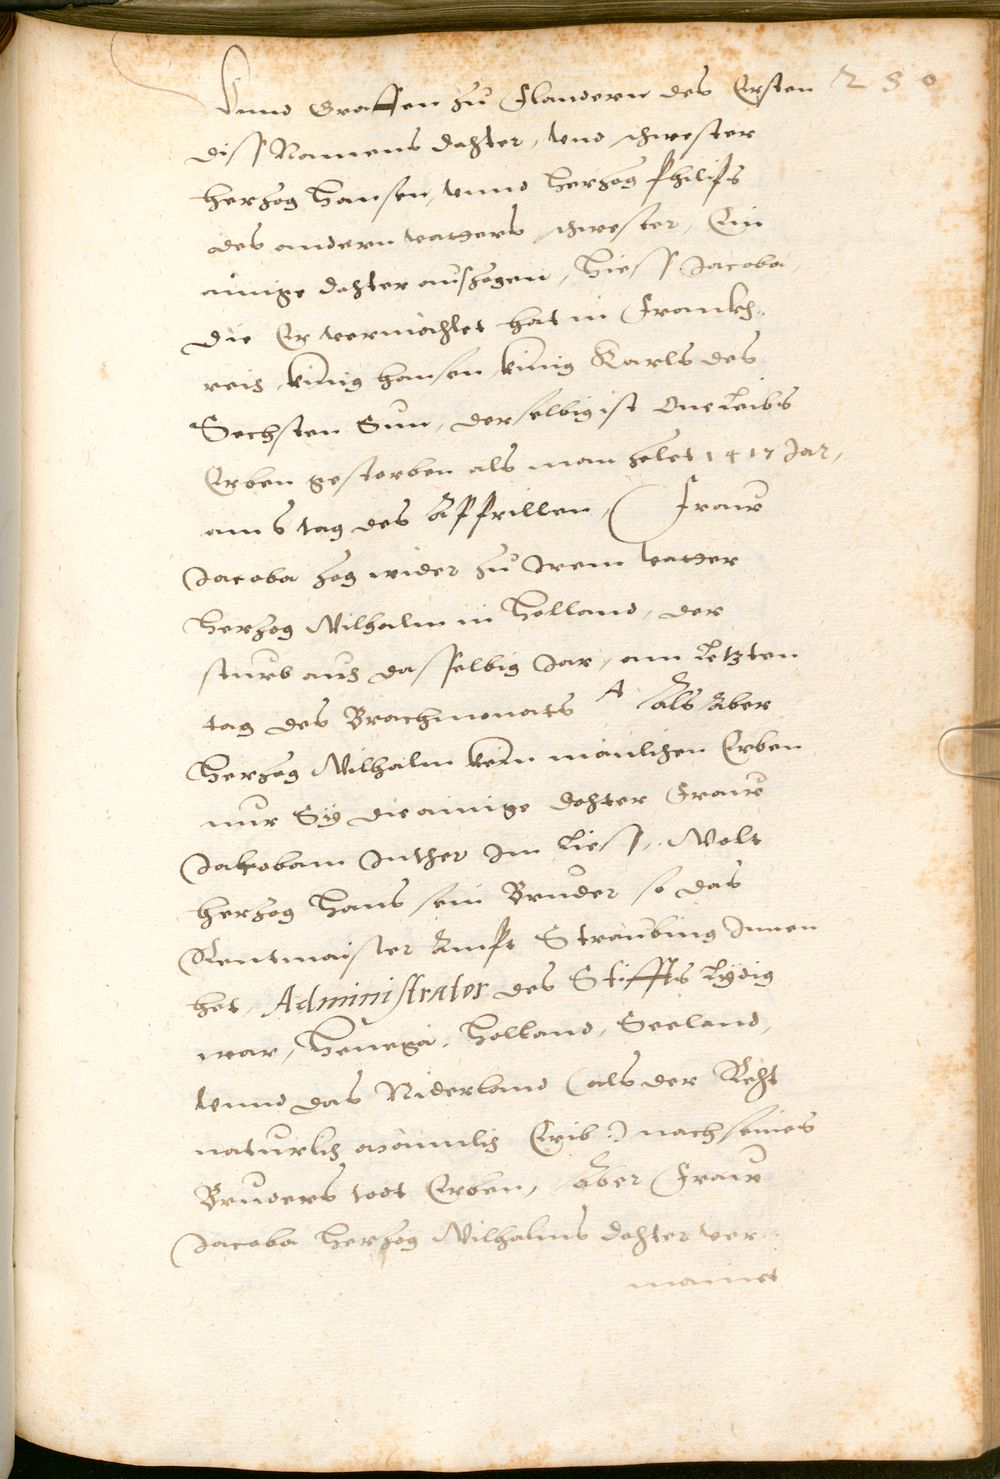 230
Vnnd Graffen zu Flandern des Ersten
diss Namens dochter, vnd schwester
herzog Hansen, vnnd Herzog Philips
des andern vatters schwester, Ein
ainige dochter auszogen, Hiess Jacoba,
die Er vermächlet hat in Franckh-
reich, künig hansen, künig Karls des
Sechsten Sun, derselbig ist One Leibs
Erben gestorben als man zelet 1417 Jar,
am 6 tag des Appprillen, (Fraw
Jacoba zog wider zu Irem vatter
Herzog Wilhalm in Holland, der
sturb auch dasselbig Jar, am Letzten
tag des Brachmonats A Als Aber
Herzog Wilhalm kein mänlichen Erben
nur Sÿ die ainige dochter Fraw
Jakobam hinder Im Liess, Wolt
herzog Hans sein Bruder so das
Rentmaister Ampt Straubing Innen
het, Administrator des Stiffts Lÿdig
war, Henegä, Holland, Seeland,
Vnnd das Niderland (als der Recht
naturlich mänlich Erib:) nach seines
Bruders todt Erben, Aber Fraw
Jacoba Herzog Wilhalms dochter ver-
mainet